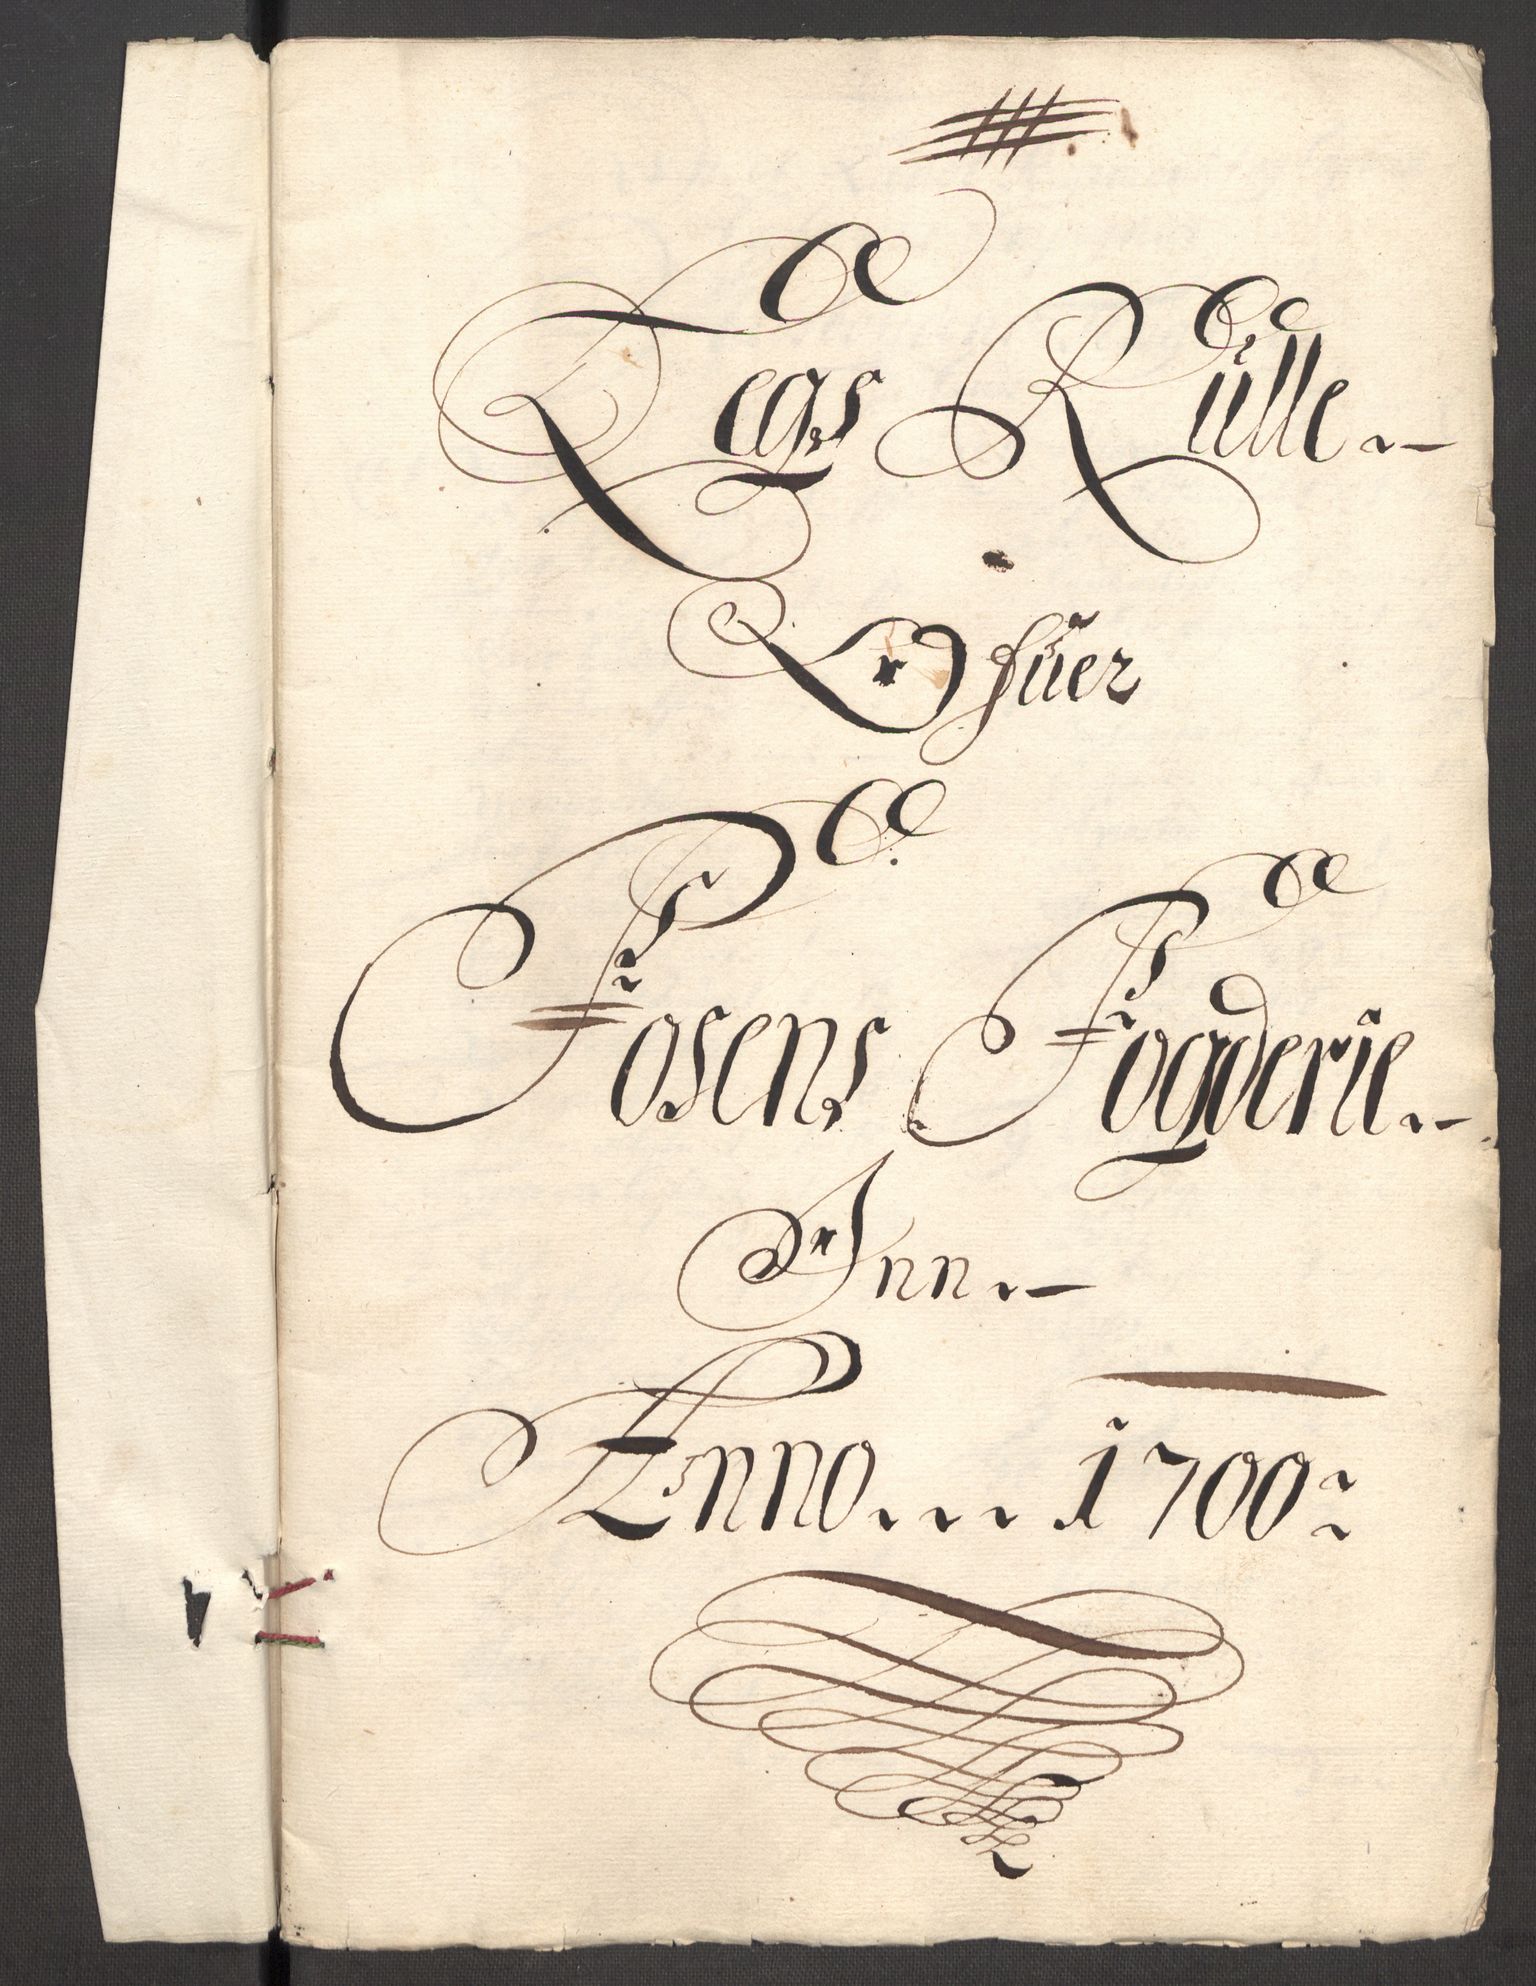 Legs Rülle
Ofüer
Fosens Fogderie
Inn
Anno 1700